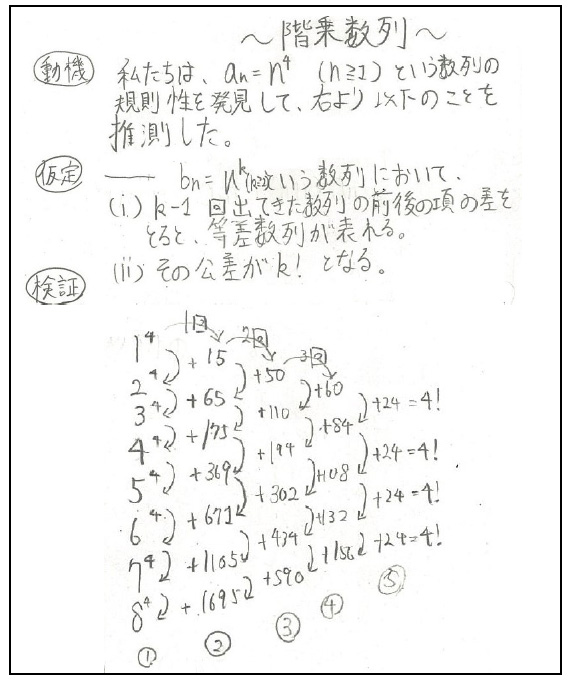 ～階乗数列～
動機 私たちは、an=n⁴ (n≧1) という数列の
規則性を発見して、右より以下のことを
推測した。
仮定 ― bn=n^k(n≧1)という数列において、
(i) k-1回出てきた数列の前後の項の差を
とると、等差数列が表れる。
(ii) その公差がk! となる。
検証
1回 2回 3回
1⁴
+15
2⁴ +50
+65 +60
3⁴ +110 +24=4!
+175 +84
4⁴ +194 +24=4!
+369 +108
5⁴ +302 +24=4!
+671 +132
6⁴ +434 +24=4!
+1105 +156
7⁴ +590
+1695
8⁴
① ② ③ ④ ⑤